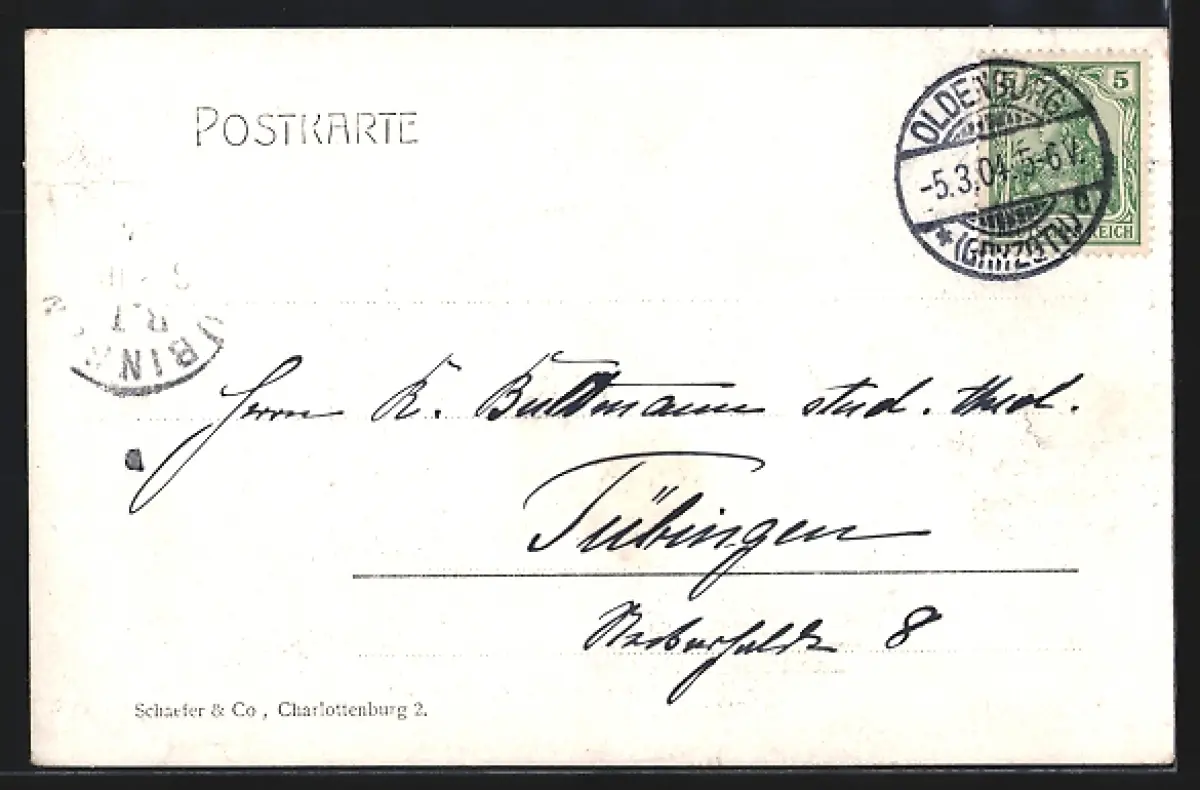 POSTKARTE
5 5
OLDENBURG
-5.3.04.5-6V.
*(GRHZGTH) a
REICH
BIN
Herrn R. Bultmann stud. theol.
Tübingen
8
Schaefer & Co, Charlottenburg 2.